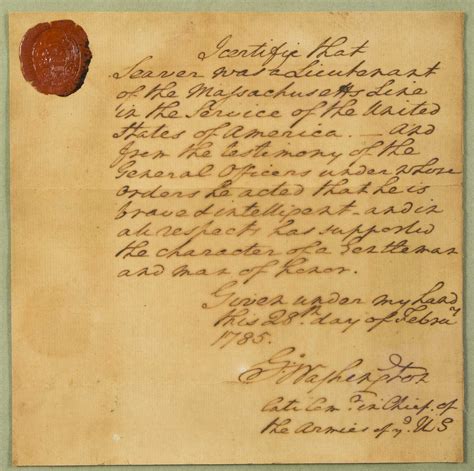 I certifie that
Seaver was a Lieutenant
of the Massachusetts Line
in the Service of the United
States of America. — And
from the testimony of the
General Officers under whose
orders he acted that he is
brave & intelligent - and in
all respects has supported
the character of a Gentleman
and man of honor.
Given under my hand
this 28th day of Febru.y
1785.
G:o Washington
late Com.r in Chief of
the Armies of ye U S